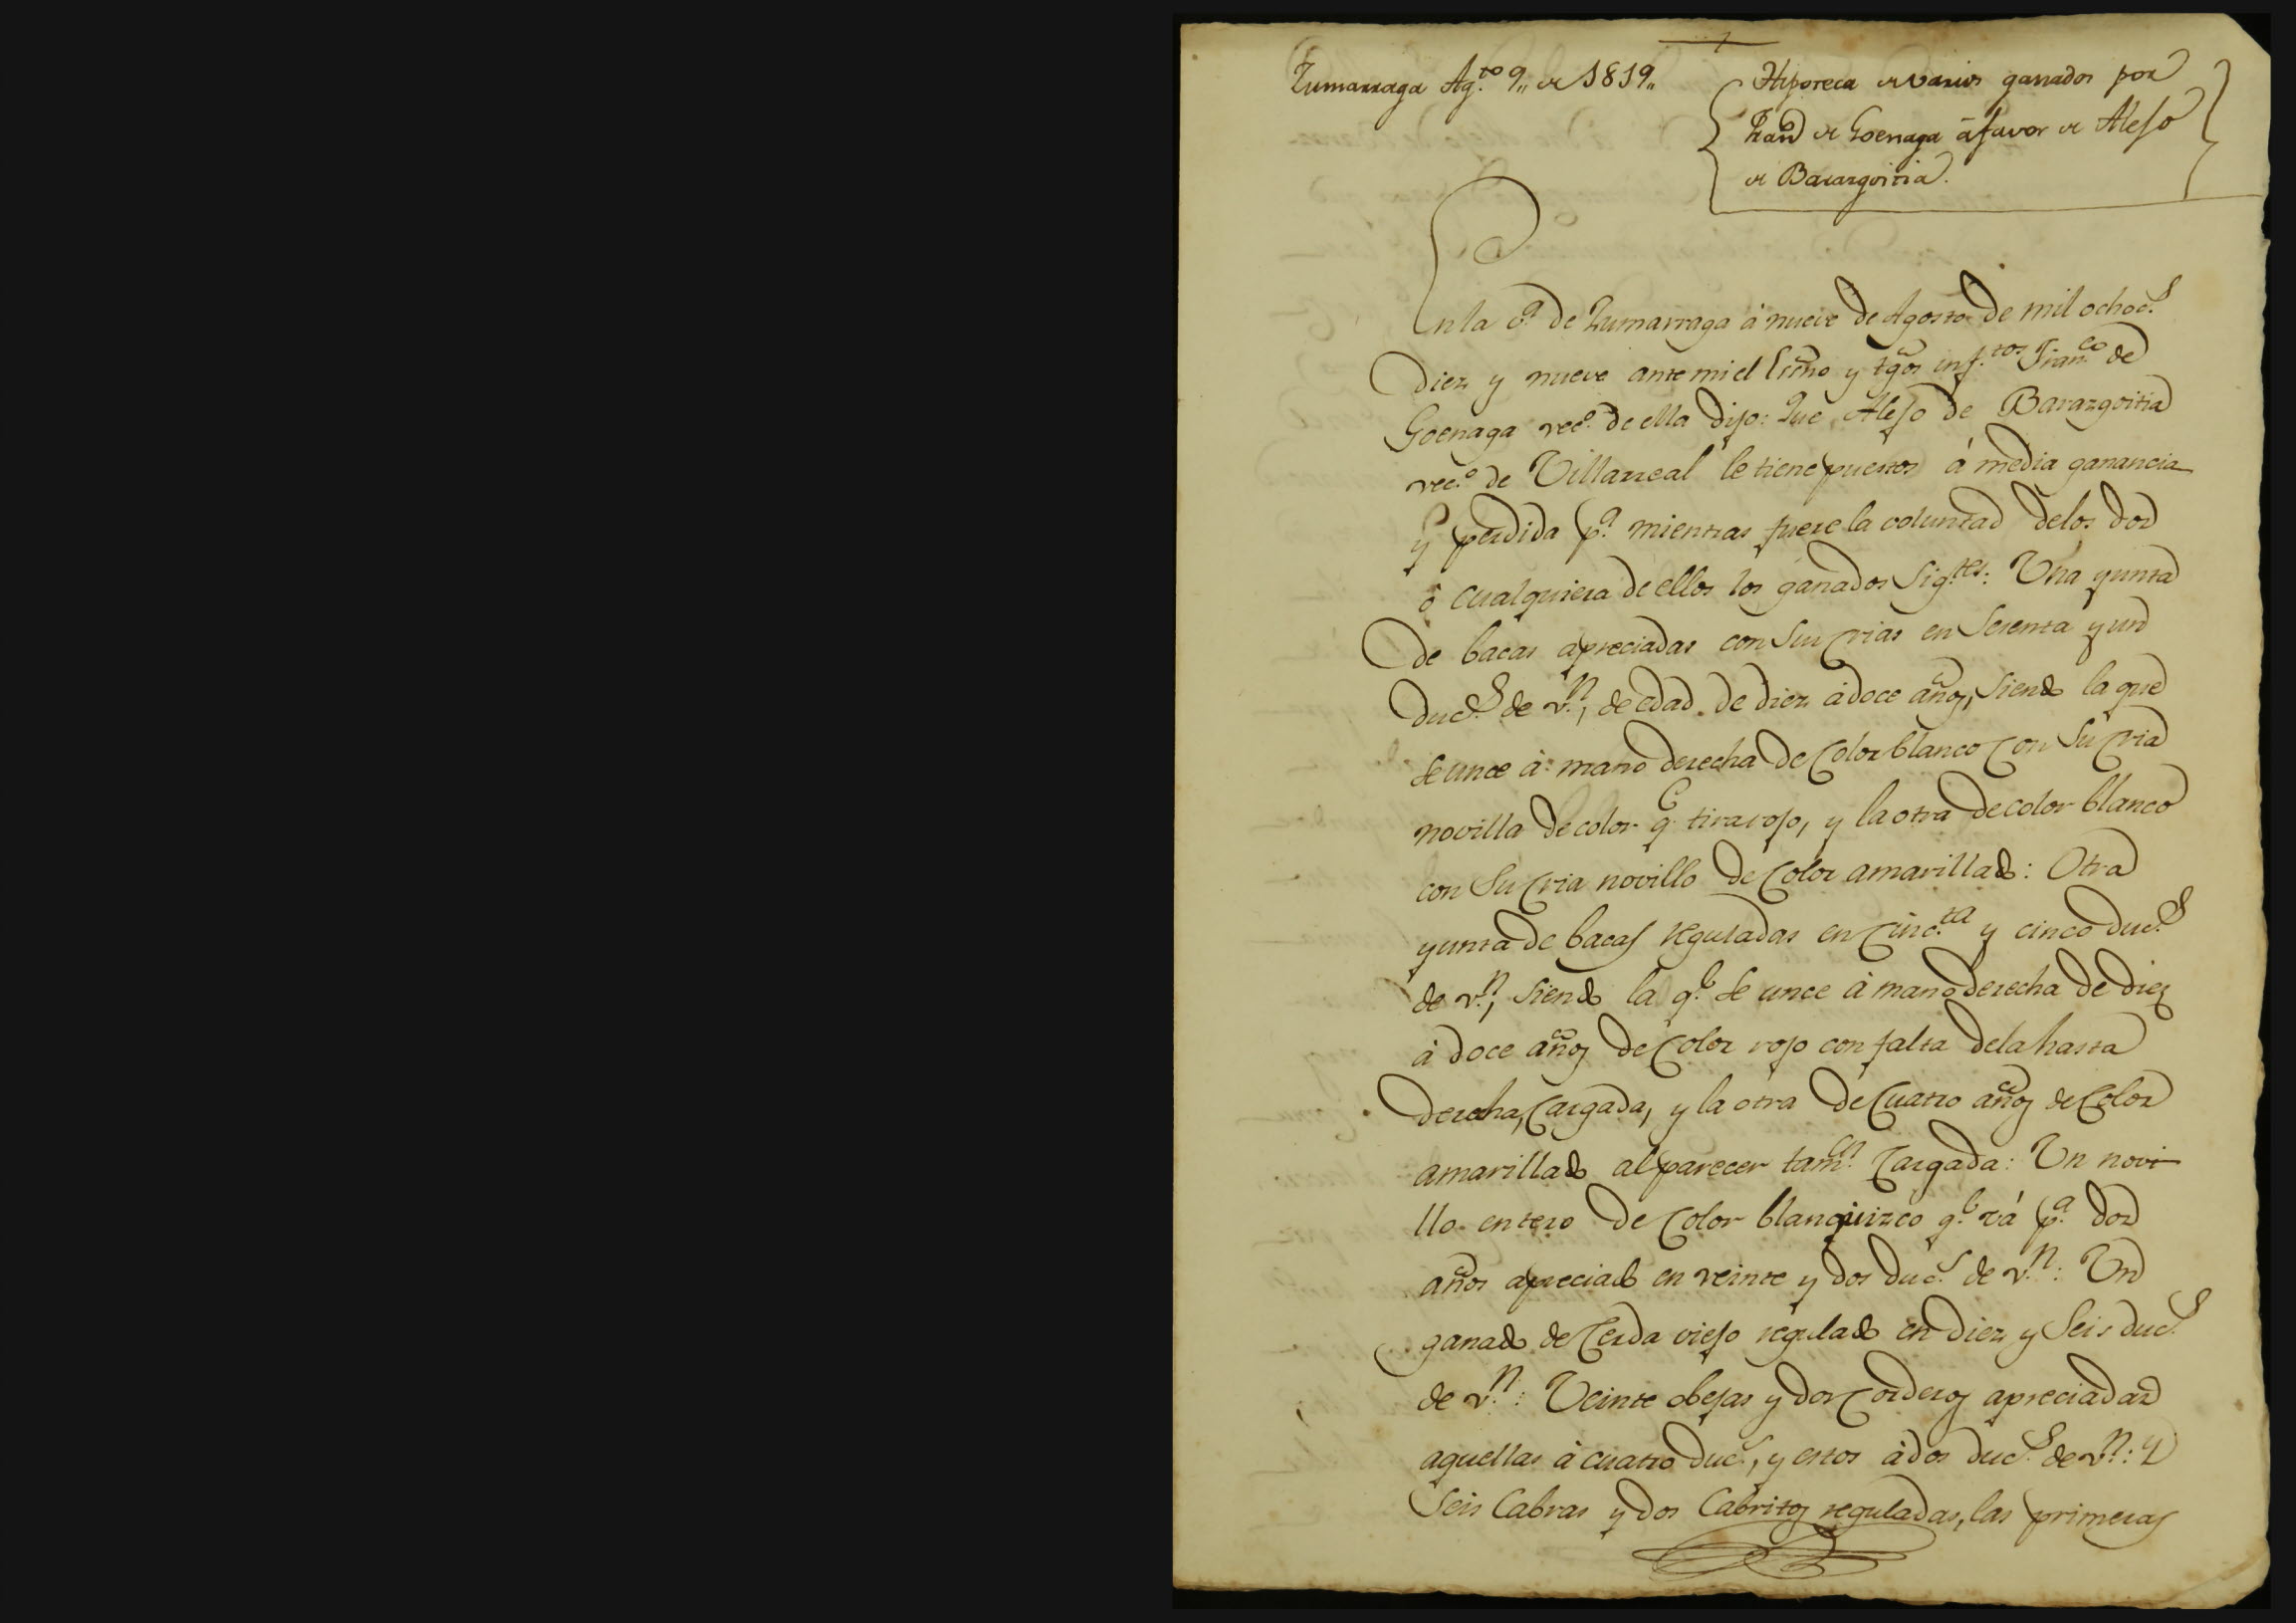 Zumarraga Ag.to 9,, de 1819,,
Hipoteca de varios ganados por
Fran.co de Goenaga á favor de Alejo
de Barazgoitia.
En la v.a de Zumarraga á nueve de Agosto de mil ochoc.s
diez y nueve ante mi el Ssno y tgos inf.tos Fran.co de
Goenaga vec.o de ella dijo: Que Alejo de Barazgoitia
vec.o de Villarreal le tiene puestos á media ganancia
y perdida p.a mientras fuere la voluntad delos dos
ó cualquiera de ellos los ganados sig.tes: Una yunta
de bacas apreciadas con sus crias en sesenta y un
duc.s de v.n, de edad de diez á doce años, siendo la que
se unce á mano derecha de color blanco con su cria
novilla de color q.e tira rojo, y la otra de color blanco
con su cria novillo de color amarillado: Otra
yunta de bacas reguladas en cinc.ta y cinco duc.s
de v.n, siendo la q.e se unce á mano derecha de diez
á doce años de color rojo con falta dela hasta
derecha, cargada, y la otra de cuatro años de color
amarillado al parecer tam.n cargada: Un novi-
llo entero de color blanquizco q.e vá p.a dos
años apreciado en veinte y dos duc.s de v.n: Un
ganado de cerda viejo regulado en diez y seis duc.s
de v.n: Veinte obejas y dos corderos apreciadas
aquellas á cuatro duc.s, y estos á dos duc.s de v.n: Y
seis cabras y dos cabritos reguladas, las primeras